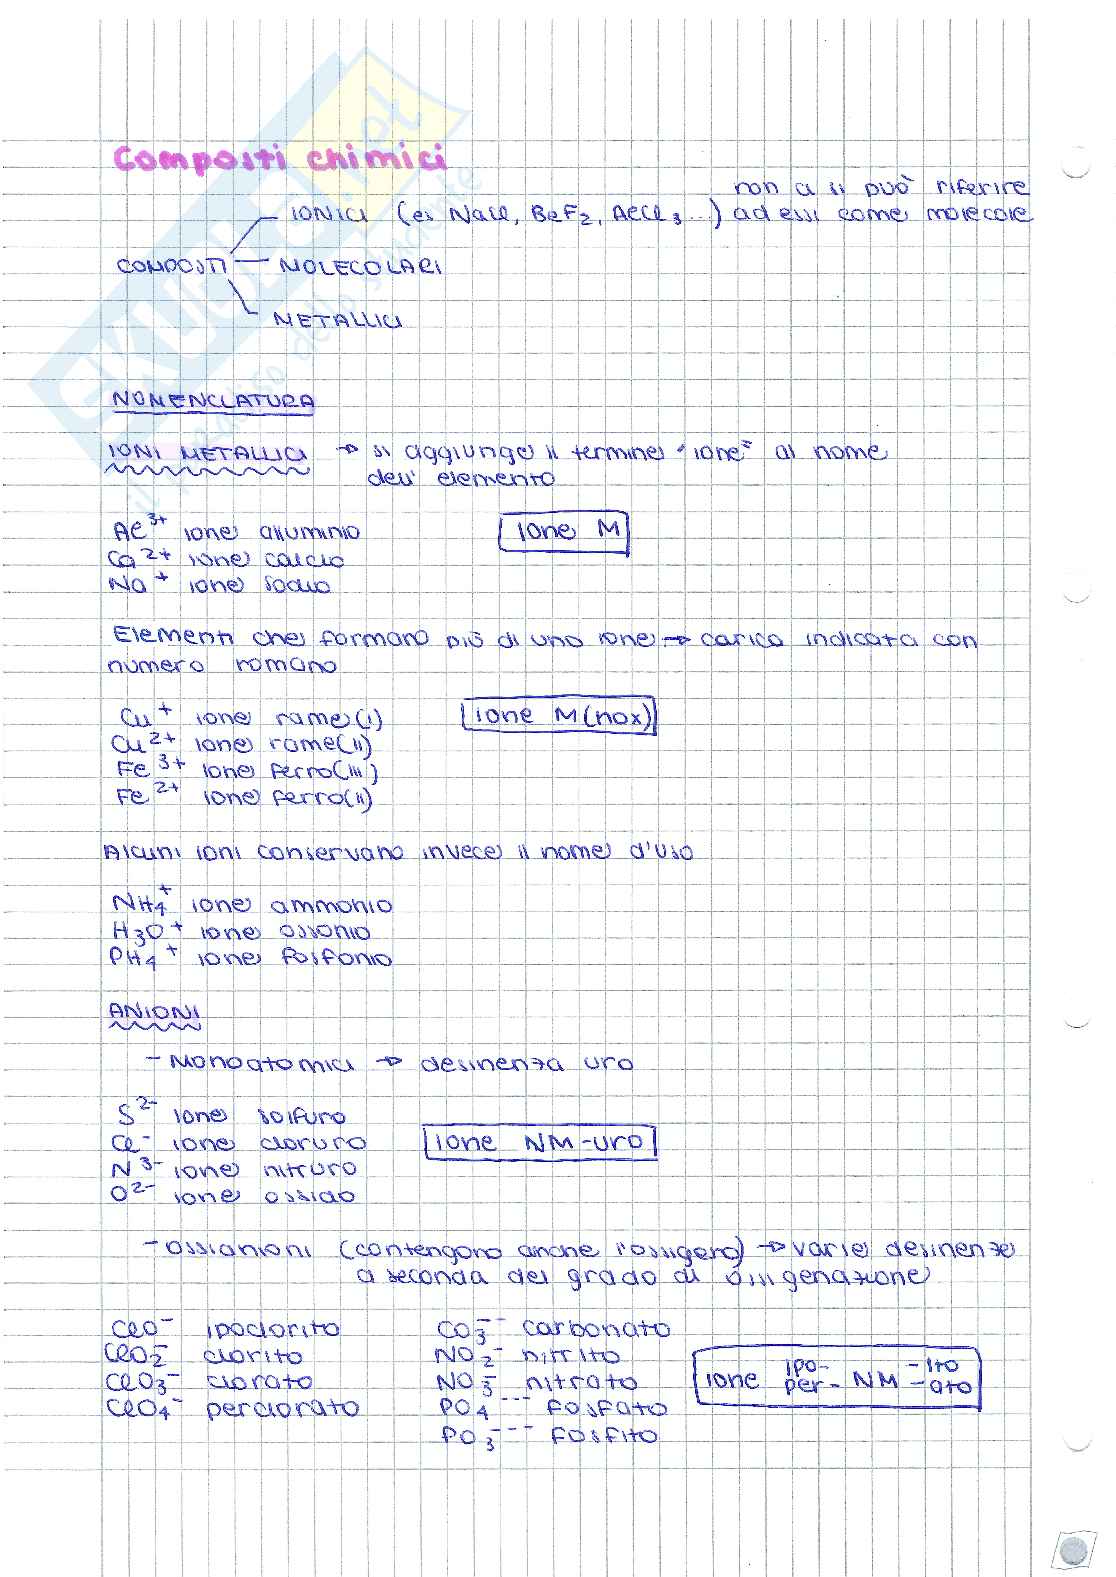 Composti chimici
non ci si può riferire
IONICI (es NaCl, BeF2, AlCl3...) ad essi come molecole
COMPOSTI MOLECOLARI
METALLICI
NOMENCLATURA
IONI METALLICI → si aggiunge il termine "ione" al nome
dell' elemento
Al³⁺ ione alluminio
ione M
Ca²⁺ ione calcio
Na⁺ ione sodio
Elementi che formano più di uno ione → carica indicata con
numero romano
Cu⁺ ione rame(I)
ione M(nox)
Cu²⁺ ione rame(II)
Fe³⁺ ione ferro(III)
Fe²⁺ ione ferro(II)
Alcuni ioni conservano invece il nome d'uso
NH4⁺ ione ammonio
H3O⁺ ione ossonio
PH4⁺ ione fosfonio
ANIONI
- Monoatomici → desinenza uro
S²⁻ ione solfuro
Cl⁻ ione cloruro
ione NM-uro
N³⁻ ione nitruro
O²⁻ ione ossido
- Ossianioni (contengono anche l'ossigeno) → varie desinenze
a seconda del grado di ossigenazione
ClO⁻ ipoclorito CO3⁻⁻ carbonato
ClO2⁻ clorito NO2⁻ nitrito
ClO3⁻ clorato NO3⁻ nitrato
ione ipo- per- NM -ito -ato
ClO4⁻ perclorato PO4⁻⁻⁻ fosfato
PO3⁻⁻⁻ fosfito
SKUOLA.net
il paradiso dello studente